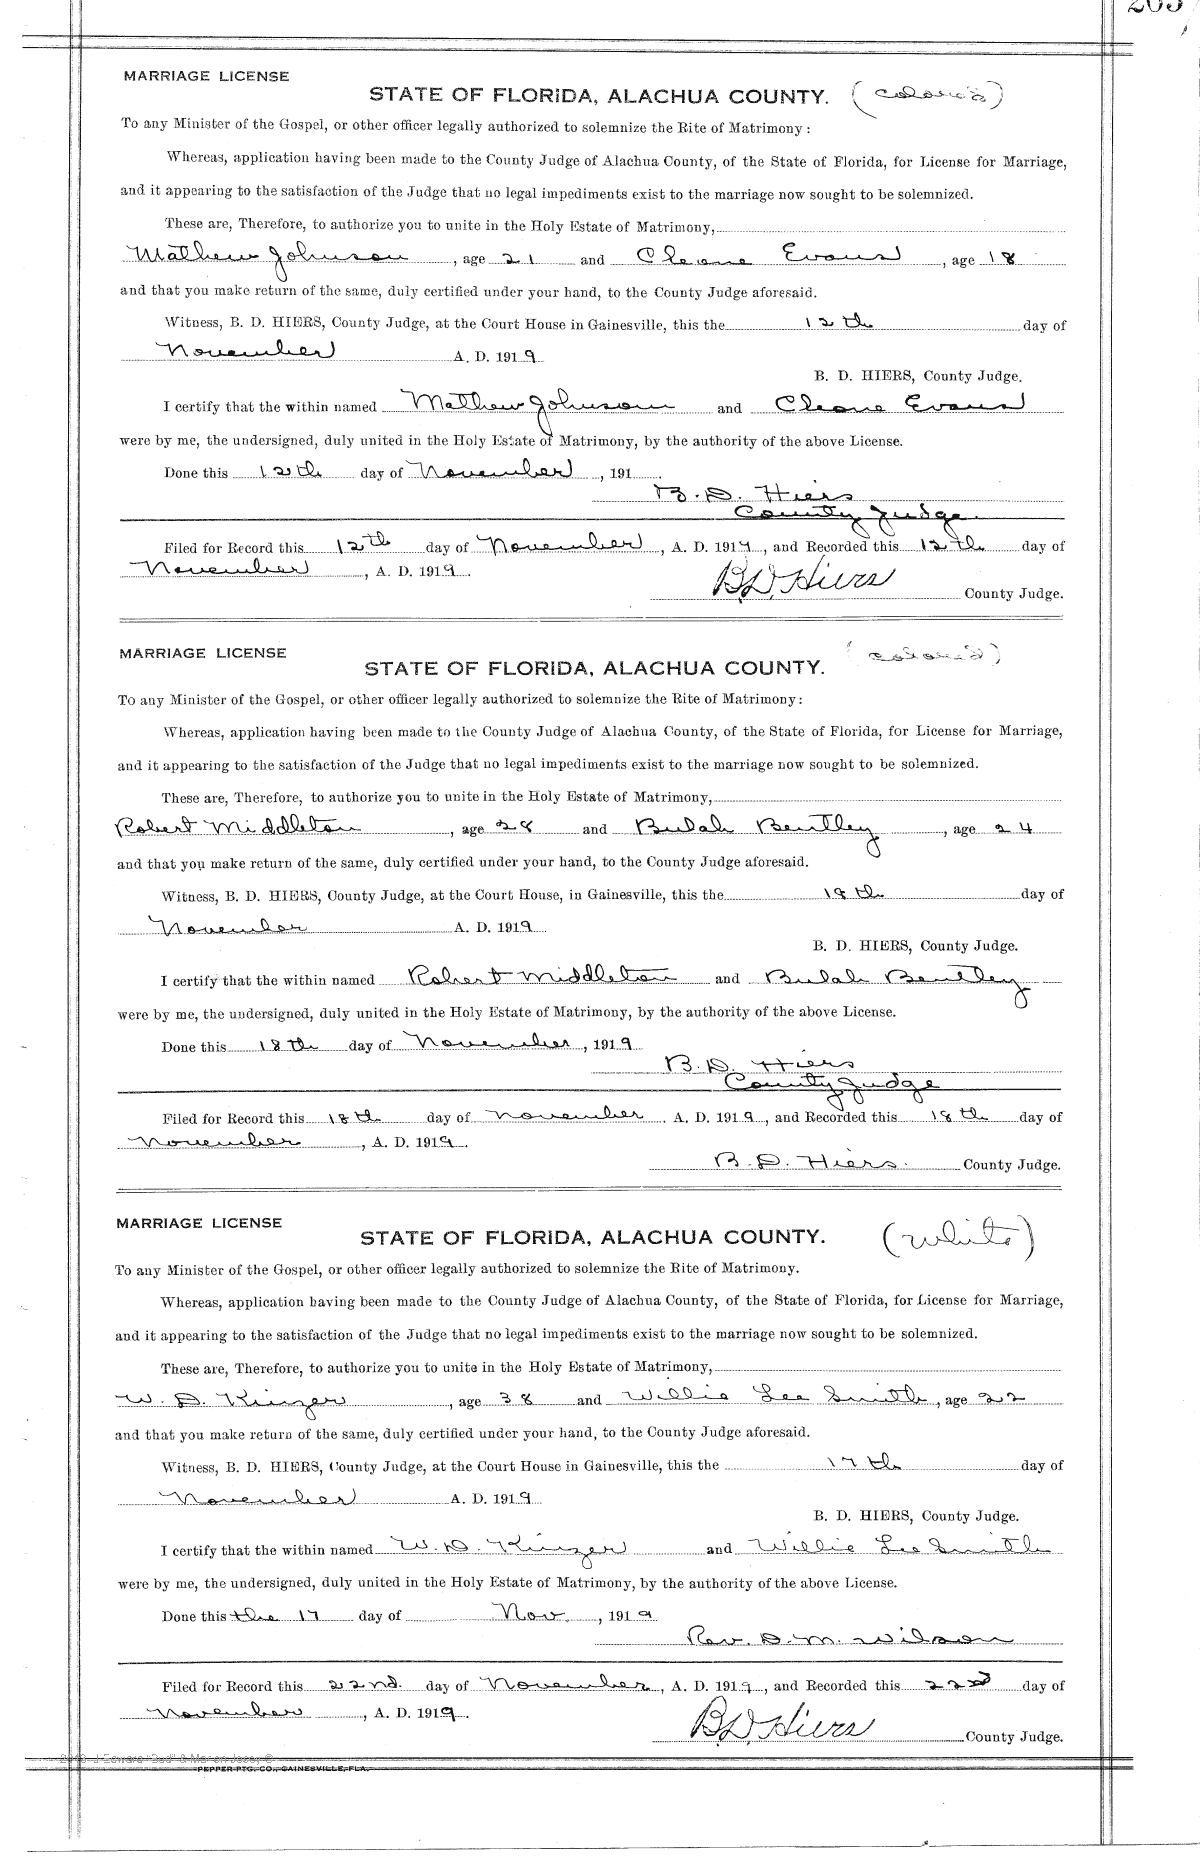 MARRIAGE LICENSE
STATE OF FLORIDA, ALACHUA COUNTY. (colored)
To any Minister of the Gospel, or other officer legally authorized to solemnize the Rite of Matrimony:
Whereas, application having been made to the County Judge of Alachua County, of the State of Florida, for License for Marriage,
and it appearing to the satisfaction of the Judge that no legal impediments exist to the marriage now sought to be solemnized.
These are, Therefore, to authorize you to unite in the Holy Estate of Matrimony,
Mathew Johnson, age 21 and Cleone Evans, age 18
and that you make return of the same, duly certified under your hand, to the County Judge aforesaid.
Witness, B. D. HIERS, County Judge, at the Court House in Gainesville, this the 12th day of
November A. D. 1919
B. D. HIERS, County Judge.
I certify that the within named Mathew Johnson and Cleone Evans
were by me, the undersigned, duly united in the Holy Estate of Matrimony, by the authority of the above License.
Done this 12th day of November, 191
B. D. Hiers
County Judge.
Filed for Record this 12th day of November, A. D. 1919, and Recorded this 12th day of
November, A. D. 1919.
B.D. Hiers County Judge.
MARRIAGE LICENSE
STATE OF FLORIDA, ALACHUA COUNTY. (colored)
To any Minister of the Gospel, or other officer legally authorized to solemnize the Rite of Matrimony:
Whereas, application having been made to the County Judge of Alachua County, of the State of Florida, for License for Marriage,
and it appearing to the satisfaction of the Judge that no legal impediments exist to the marriage now sought to be solemnized.
These are, Therefore, to authorize you to unite in the Holy Estate of Matrimony,
Robert Middleton, age 28 and Bulah Bentley, age 24
and that you make return of the same, duly certified under your hand, to the County Judge aforesaid.
Witness, B. D. HIERS, County Judge, at the Court House, in Gainesville, this the 18th day of
November A. D. 1919
B. D. HIERS, County Judge.
I certify that the within named Robert Middleton and Bulah Bentley
were by me, the undersigned, duly united in the Holy Estate of Matrimony, by the authority of the above License.
Done this 18th day of November, 1919
B. D. Hiers
County Judge
Filed for Record this 18th day of November. A. D. 1919, and Recorded this 18th day of
November, A. D. 1919.
B. D. Hiers. County Judge.
MARRIAGE LICENSE
STATE OF FLORIDA, ALACHUA COUNTY. (white)
To any Minister of the Gospel, or other officer legally authorized to solemnize the Rite of Matrimony.
Whereas, application having been made to the County Judge of Alachua County, of the State of Florida, for License for Marriage,
and it appearing to the satisfaction of the Judge that no legal impediments exist to the marriage now sought to be solemnized.
These are, Therefore, to authorize you to unite in the Holy Estate of Matrimony,
W. D. Kinzer, age 38 and Willie Lee Smith, age 22
and that you make return of the same, duly certified under your hand, to the County Judge aforesaid.
Witness, B. D. HIERS, County Judge, at the Court House in Gainesville, this the 17th day of
November A. D. 1919
B. D. HIERS, County Judge.
I certify that the within named W. D. Kinzer and Willie Lee Smith
were by me, the undersigned, duly united in the Holy Estate of Matrimony, by the authority of the above License.
Done this the 17 day of Nov., 1919
Rev. D. M. Wilson
Filed for Record this 22nd. day of November, A. D. 1919, and Recorded this 22d day of
November, A. D. 1919.
B.D. Hiers County Judge.
PEPPER PTG. CO., GAINESVILLE, FLA.